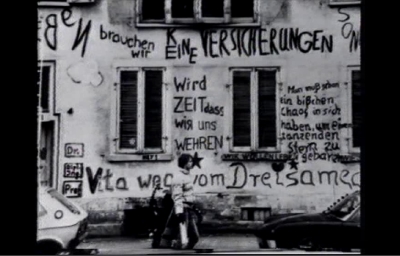 BEN
brauchen wir
KEINE VERSICHERUNGEN
SON
Wird
ZEIT dass
wir uns
WEHREN
Man muß geben
ein bißchen
Chaos in sich
haben, um einen
tanzenden
Stern zu
gebären
Dr.
Prof
Vita weg vom Dreisameck